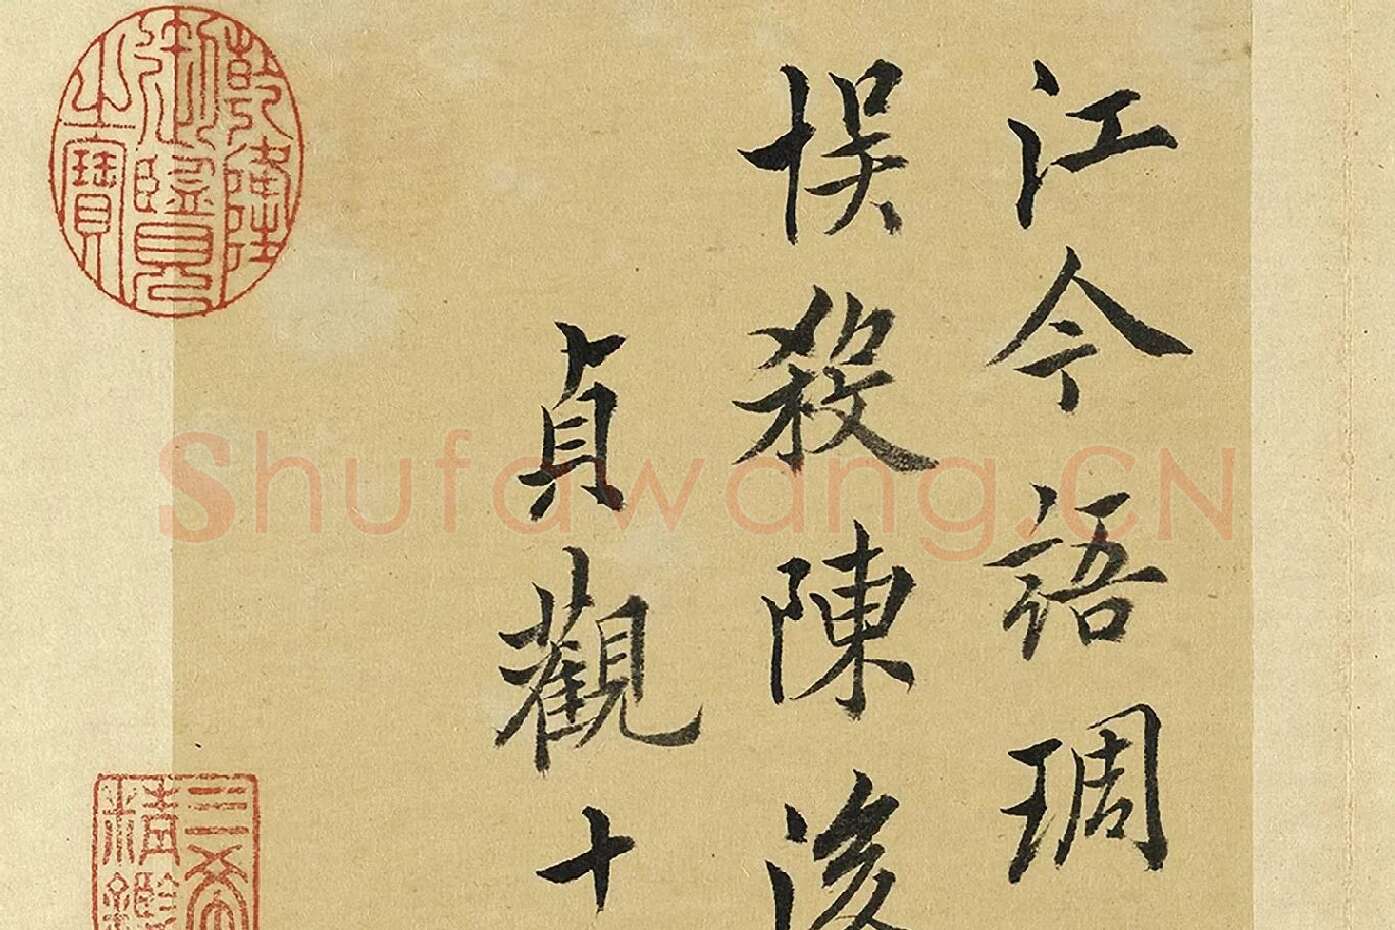 江令語琱
悮殺陳後
貞觀十
乾隆
御覽
之寶
三希
精鑑
Shufawang.CN